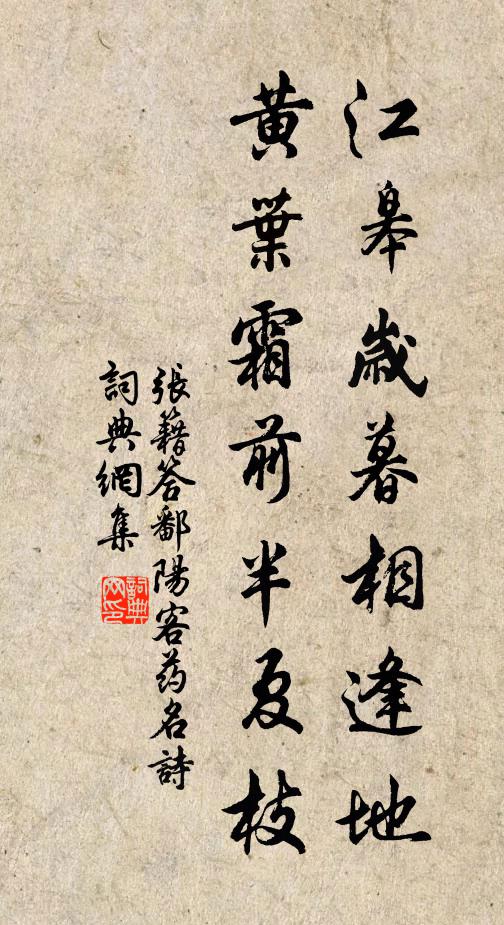 江皋歲暮相逢地
黃葉霜前半夏枝
張籍答鄱陽客药名詩
詞典網集
詞典